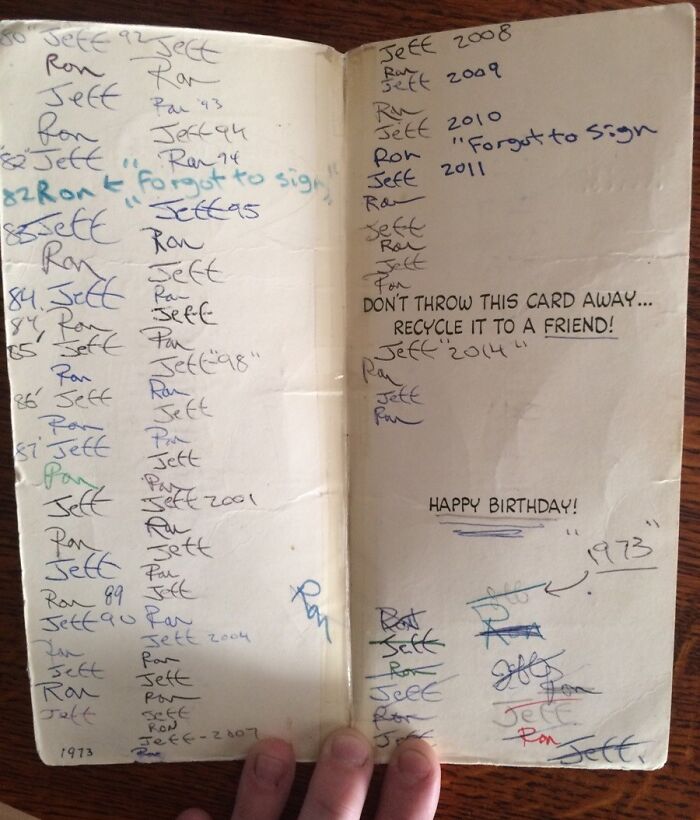 80" Jeff
Ron
Jeff
Ron
"82" Jeff
82 Ron ← "Forgot to sign"
83 Jeff
Ron
84. Jeff
84' Ron
85' Jeff
Ron
86' Jeff
Ron
87' Jeff
Ron
Jeff
Ron
Jeff
Ron 89
Jeff 90
Ron
Jeff
Ron
Jeff
1973
92 Jeff
Ron
Ron '93
Jeff 94
Ron 94
Jeff 95
Ron
Jeff
Ron
Jeff
Ron
Jeff "98"
Ron
Jeff
Ron
Jeff
Ron
Jeff 2001
Ron
Jeff
Ron
Jeff
Ron
Jeff 2004
Ron
Jeff
Ron
Jeff
RON
Jeff - 2007
Ron
Ron
Jeff 2008
Ron
Jeff 2009
Ron
Jeff 2010
Ron "Forgot to sign
Jeff 2011
Ron
Jeff
Ron
Jeff
Ron
DON'T THROW THIS CARD AWAY...
RECYCLE IT TO A FRIEND!
Jeff "2014"
Ron
Jeff
Ron
HAPPY BIRTHDAY!
"1973"
Ron
Jeff
Ron
Jeff
Ron
Jeff
Jeff
Ron
Jeff
Ron
Jeff
Ron
Jeff.